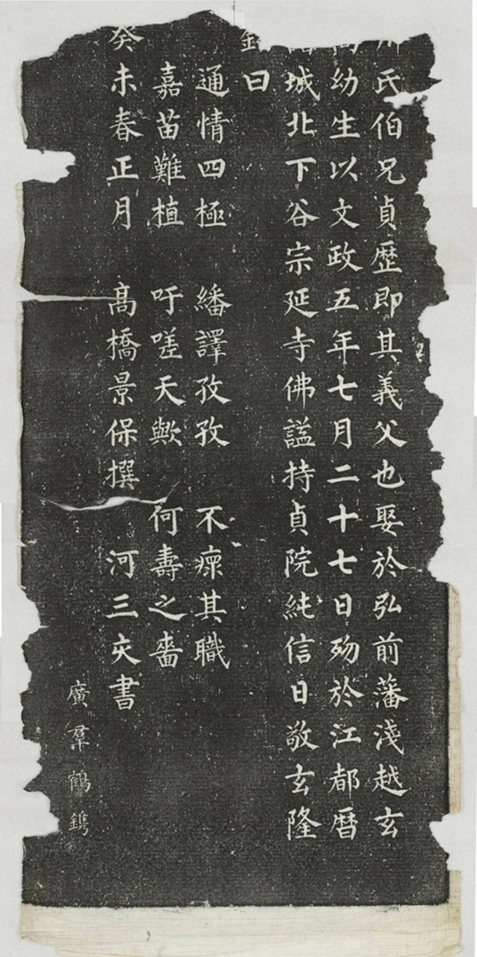 氏伯兄貞歴即其義父也娶於弘前藩淺越玄
幼生以文政五年七月二十七日歾於江都暦
城北下谷宗延寺佛謚持貞院純信日敬玄隆
銘曰
通情四極　繙譯孜孜　不瘝其職
嘉苗難植　吁嗟天歟　何壽之嗇
癸未春正月　髙橋景保撰　河三亥書
廣羣鶴鐫